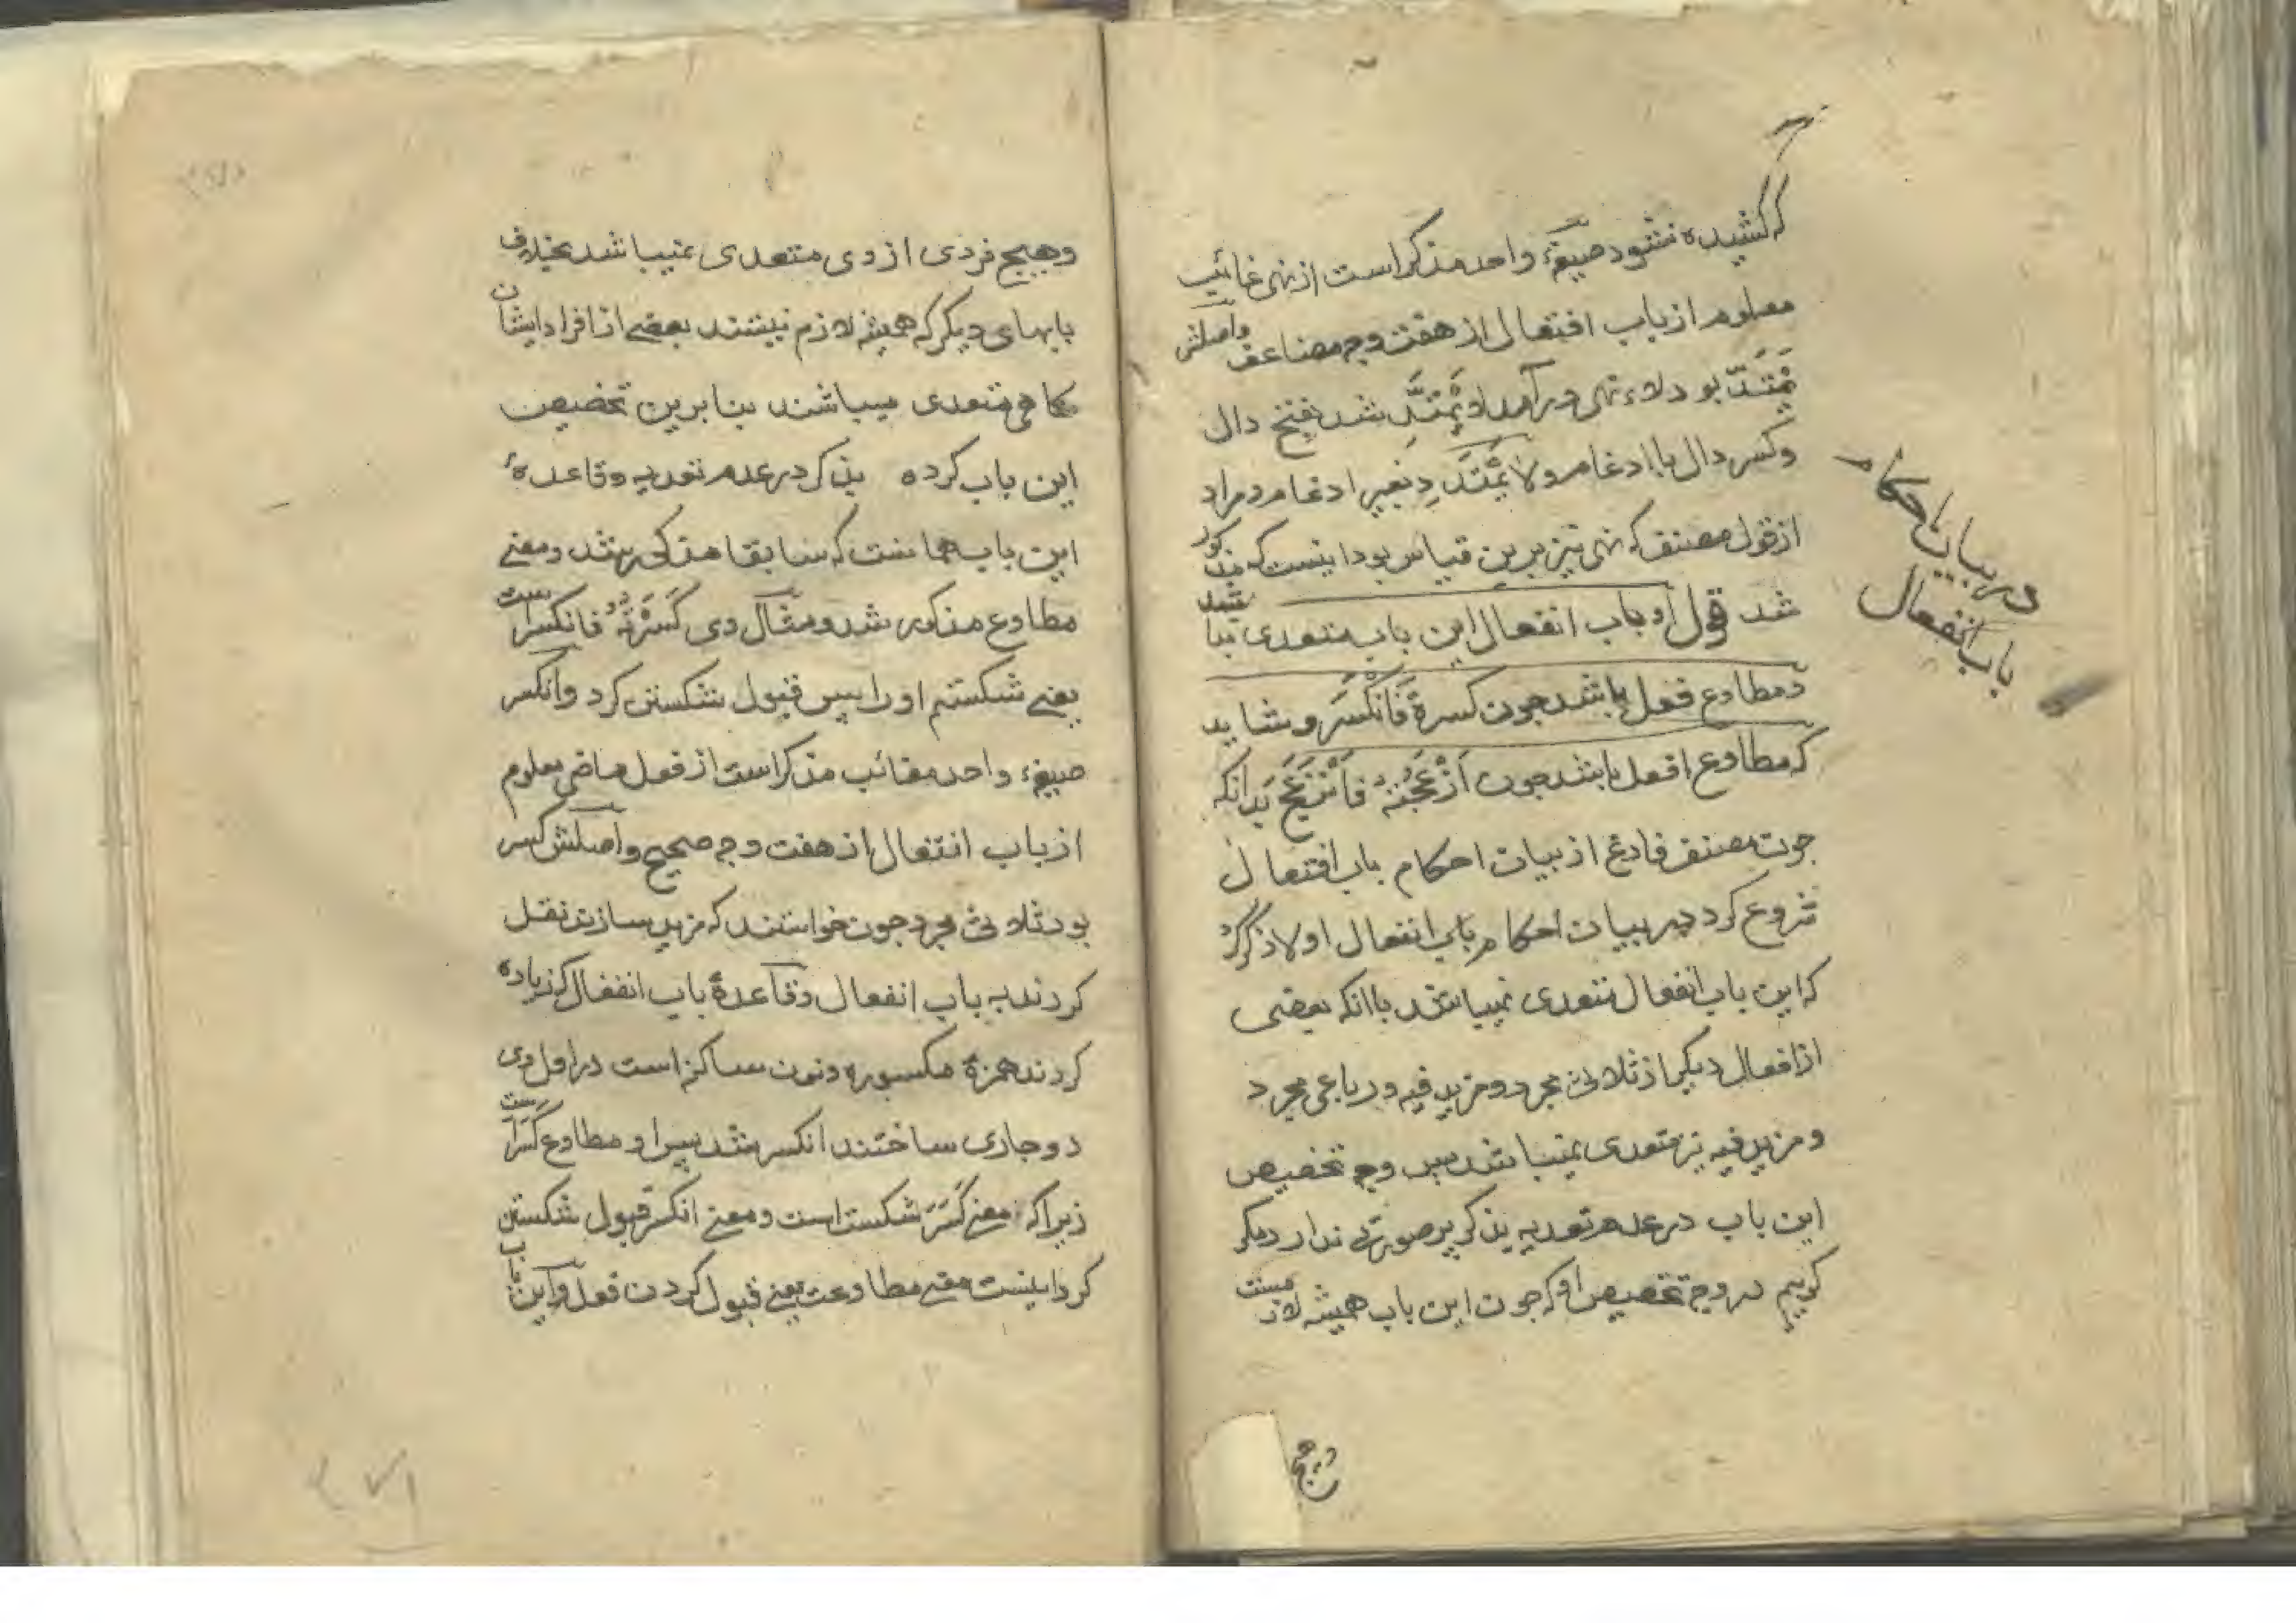 که کشیده نشود صیغهٔ واحد مذکر است از نهی غائب
معلوم از باب افتعال از هفت وجه مضاعف واصلش
یَمْتَدّ بود لاء نهی درآمد لا یَمْتَدَّ شد بفتح دال
وکسر دال با ادغام ولا یَمْتَدِدْ بغیر ادغام ومراد
از قول مصنف که نهی نیز برین قیاس بود اینست که مذکور
شد قول او باب انفعال این باب متعدی نباشد
ومطاوع فعل باشد چون کسرته فَانْکَسَرَ وشاید
که مطاوع افعل باشد چون اَزْعَجْتُهُ فَانْزَعَجَ بدانکه
چون مصنف فارغ از بیان احکام باب افتعال
شروع کرد در بیان احکام باب انفعال اولا ذکر کرد
که این باب انفعال متعدی نمیباشد با انکه بعضی
از افعال دیکر از ثلاثی مجرد ومزید فیه ورباعی مجرد
ومزید فیه نیز متعدی نمیباشد پس وجه تخصیص
این باب در عدم تعدیه بذکر بر صورتی ندارد مکر
کوییم در وجه تخصیص او که چون این باب همیشه لازمست
در بیان احکام
باب انفعال
وهیچ
وهیچ فردی از وی متعدی نمیباشد بخلاف
بابهای دیکر که همیشه لازم نیستند بعضی از افراد ایشان
کاهی متعدی میباشند بنا برین تخصیص
این باب کرده بذکر در عدم تعدیه وقاعدهٔ
این باب همانست که سابقا مذکور شد ومعنی
مطاوع مذکور شد ومثال وی کَسَرْتُهُ فانکسراست
یعنی شکستم او را پس قبول شکستن کرد وانکسر
صیغهٔ واحد مغائب مذکر است از فعل ماضی معلوم
از باب انفعال از هفت وجه صحیح واصلش کسر
بود ثلاثی مجرد چون خواستند که مزید سازند نقل
کردند به باب انفعال وقاعدهٔ باب انفعال که زیاده
کردند همزهٔ مکسوره ونون ساکن است در اول وی
دو جاری ساختند انکسر شد پس او مطاوع کَسَرَ است
زیرا که معنی کَسَرَ شکست است ومعنی انکسر قبول شکستن
کرد اینست معنی مطاوعت یعنی قبول کردن فعل واین باب